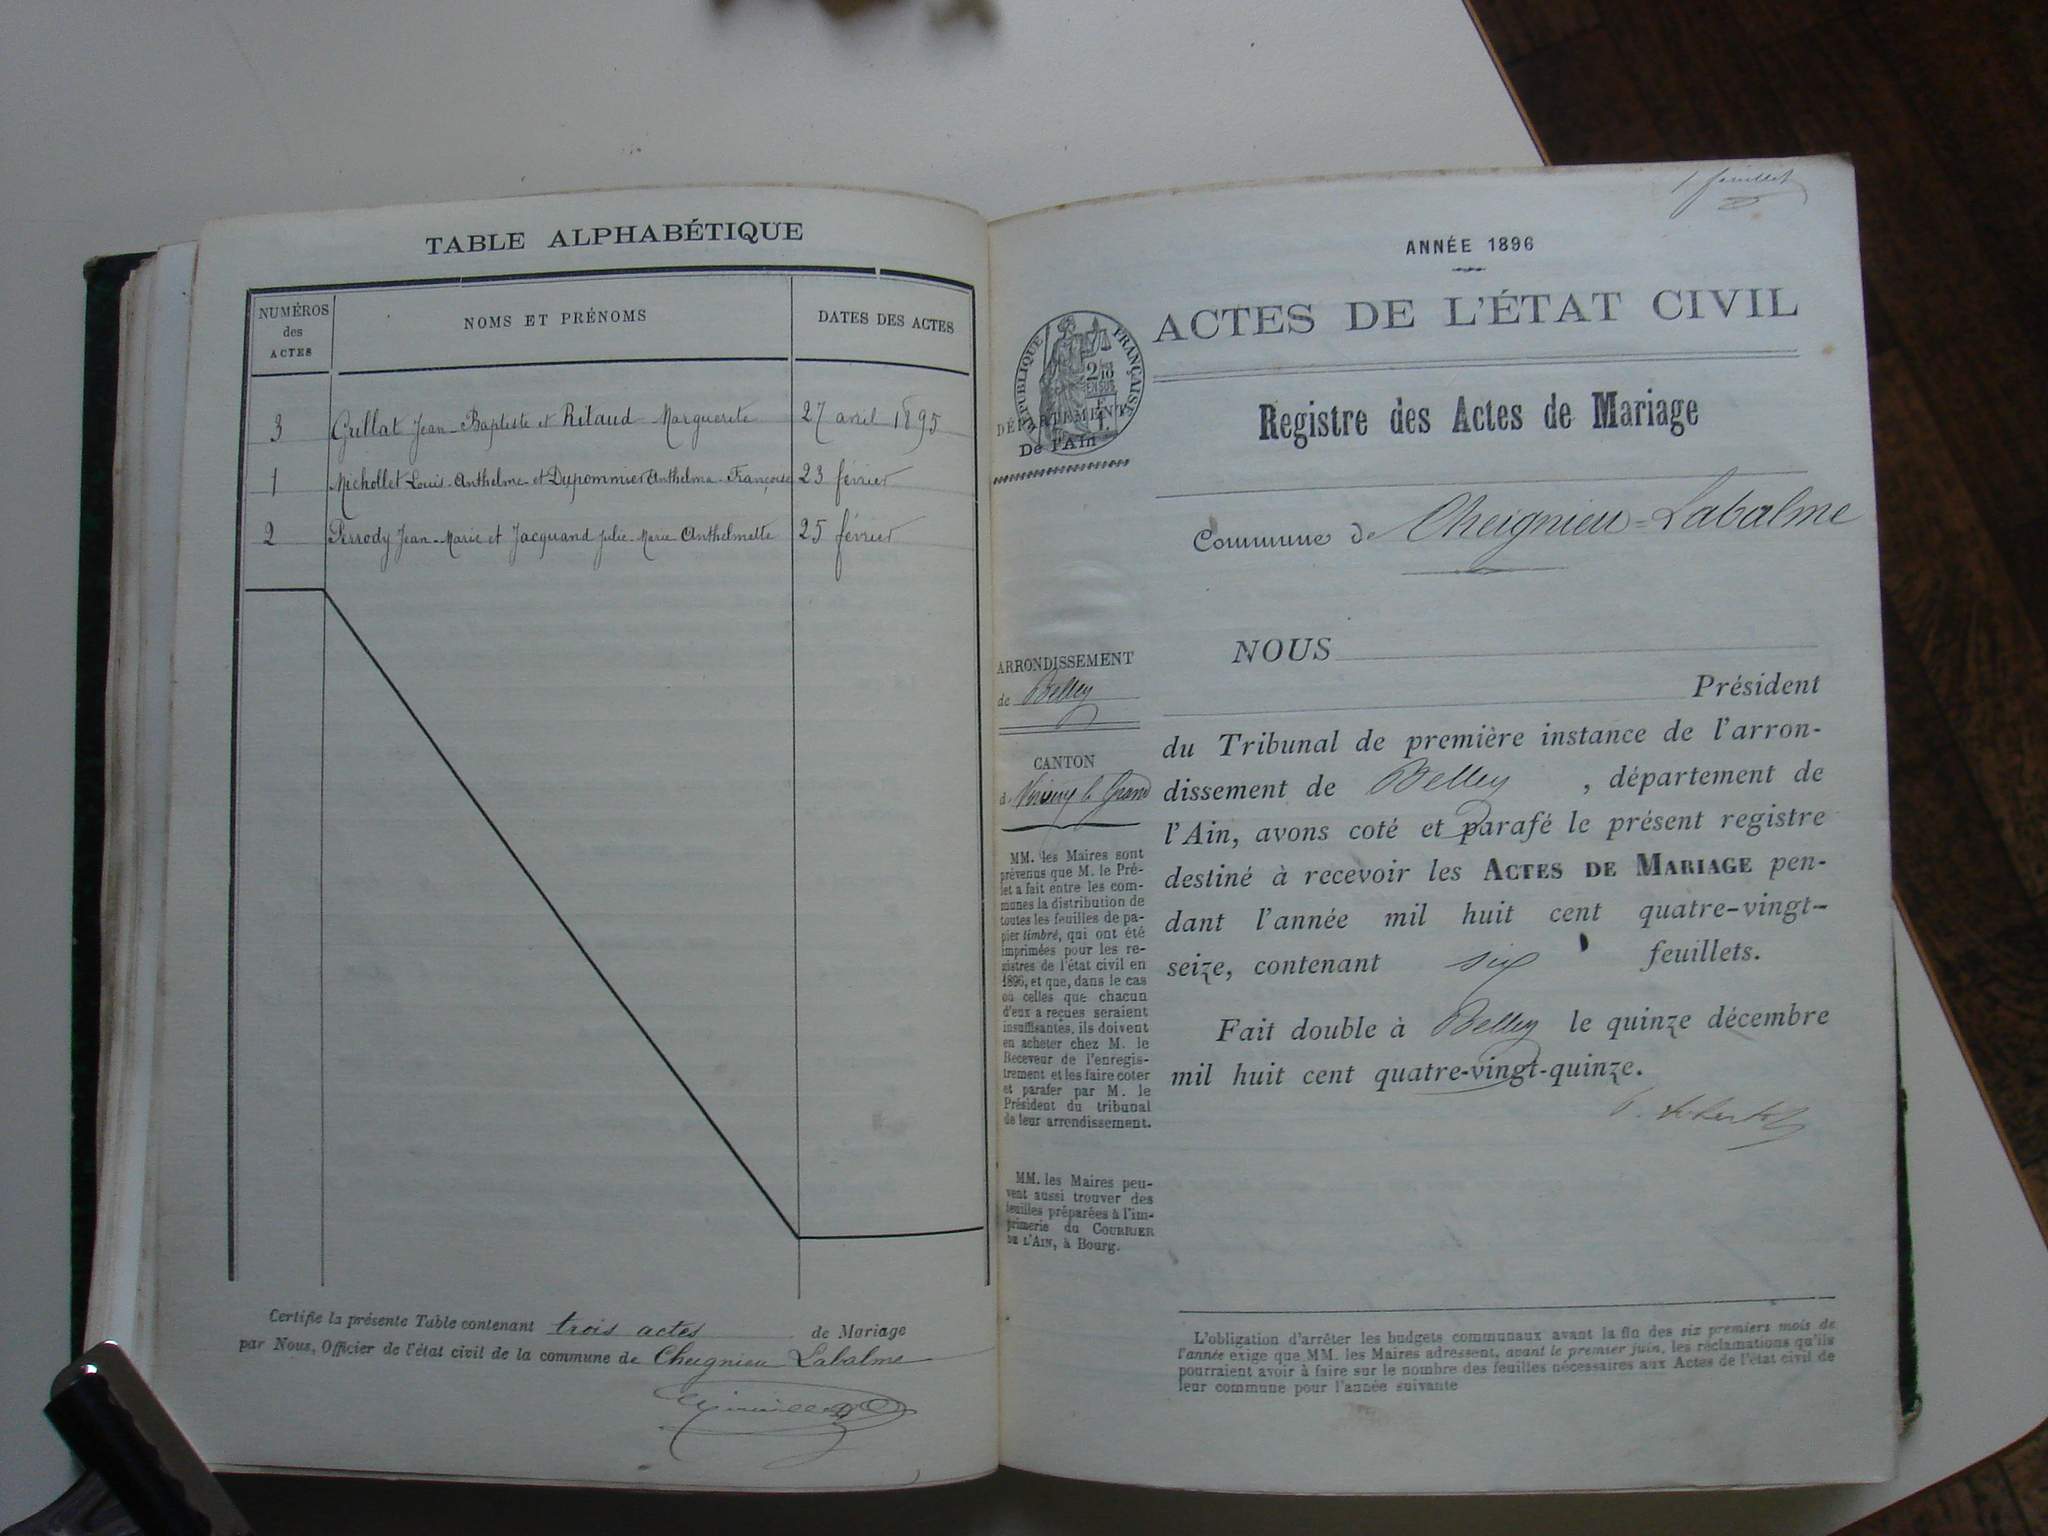 TABLE ALPHABÉTIQUE
NUMÉROS des ACTES
NOMS ET PRÉNOMS
DATES DES ACTES
3 Grillat Jean-Baptiste et Ritaud Marguerite 27 avril 1895
1 Michollet Louis-Anthelme et Dupommier Anthelma-Françoise 23 février
2 Perrody Jean-Marie et Jacquand Julie-Marie Anthelmette 25 février
Certifie la présente Table contenant trois actes de Mariage
par Nous, Officier de l'état civil de la commune de Cheignieu Labalme
1 feuillet
ANNÉE 1896
ACTES DE L'ÉTAT CIVIL
RÉPUBLIQUE FRANÇAISE
DÉPARTEMENT
De l'Ain
Registre des Actes de Mariage
Commune de Cheignieu-Labalme
ARRONDISSEMENT
de Belley
CANTON
de Virieu le Grand
MM. les Maires sont
prévenus que M. le Pré-
fet a fait entre les com-
munes la distribution de
toutes les feuilles de pa-
pier timbré, qui ont été
imprimées pour les re-
gistres de l'état civil en
1896, et que, dans le cas
où celles que chacun
d'eux a reçues seraient
insuffisantes, ils doivent
en acheter chez M. le
Receveur de l'enregis-
trement et les faire coter
et parafer par M. le
Président du tribunal
de leur arrondissement.
MM. les Maires peu-
vent aussi trouver des
feuilles préparées à l'im-
primerie du COURRIER
DE L'AIN, à Bourg.
NOUS
Président
du Tribunal de première instance de l'arron-
dissement de Belley, département de
l'Ain, avons coté et parafé le présent registre
destiné à recevoir les ACTES DE MARIAGE pen-
dant l'année mil huit cent quatre-vingt-
seize, contenant six feuillets.
Fait double à Belley le quinze décembre
mil huit cent quatre-vingt-quinze.
L'obligation d'arrêter les budgets communaux avant la fin des six premiers mois de
l'année exige que MM. les Maires adressent, avant le premier juin, les réclamations qu'ils
pourraient avoir à faire sur le nombre des feuilles nécessaires aux Actes de l'état civil de
leur commune pour l'année suivante